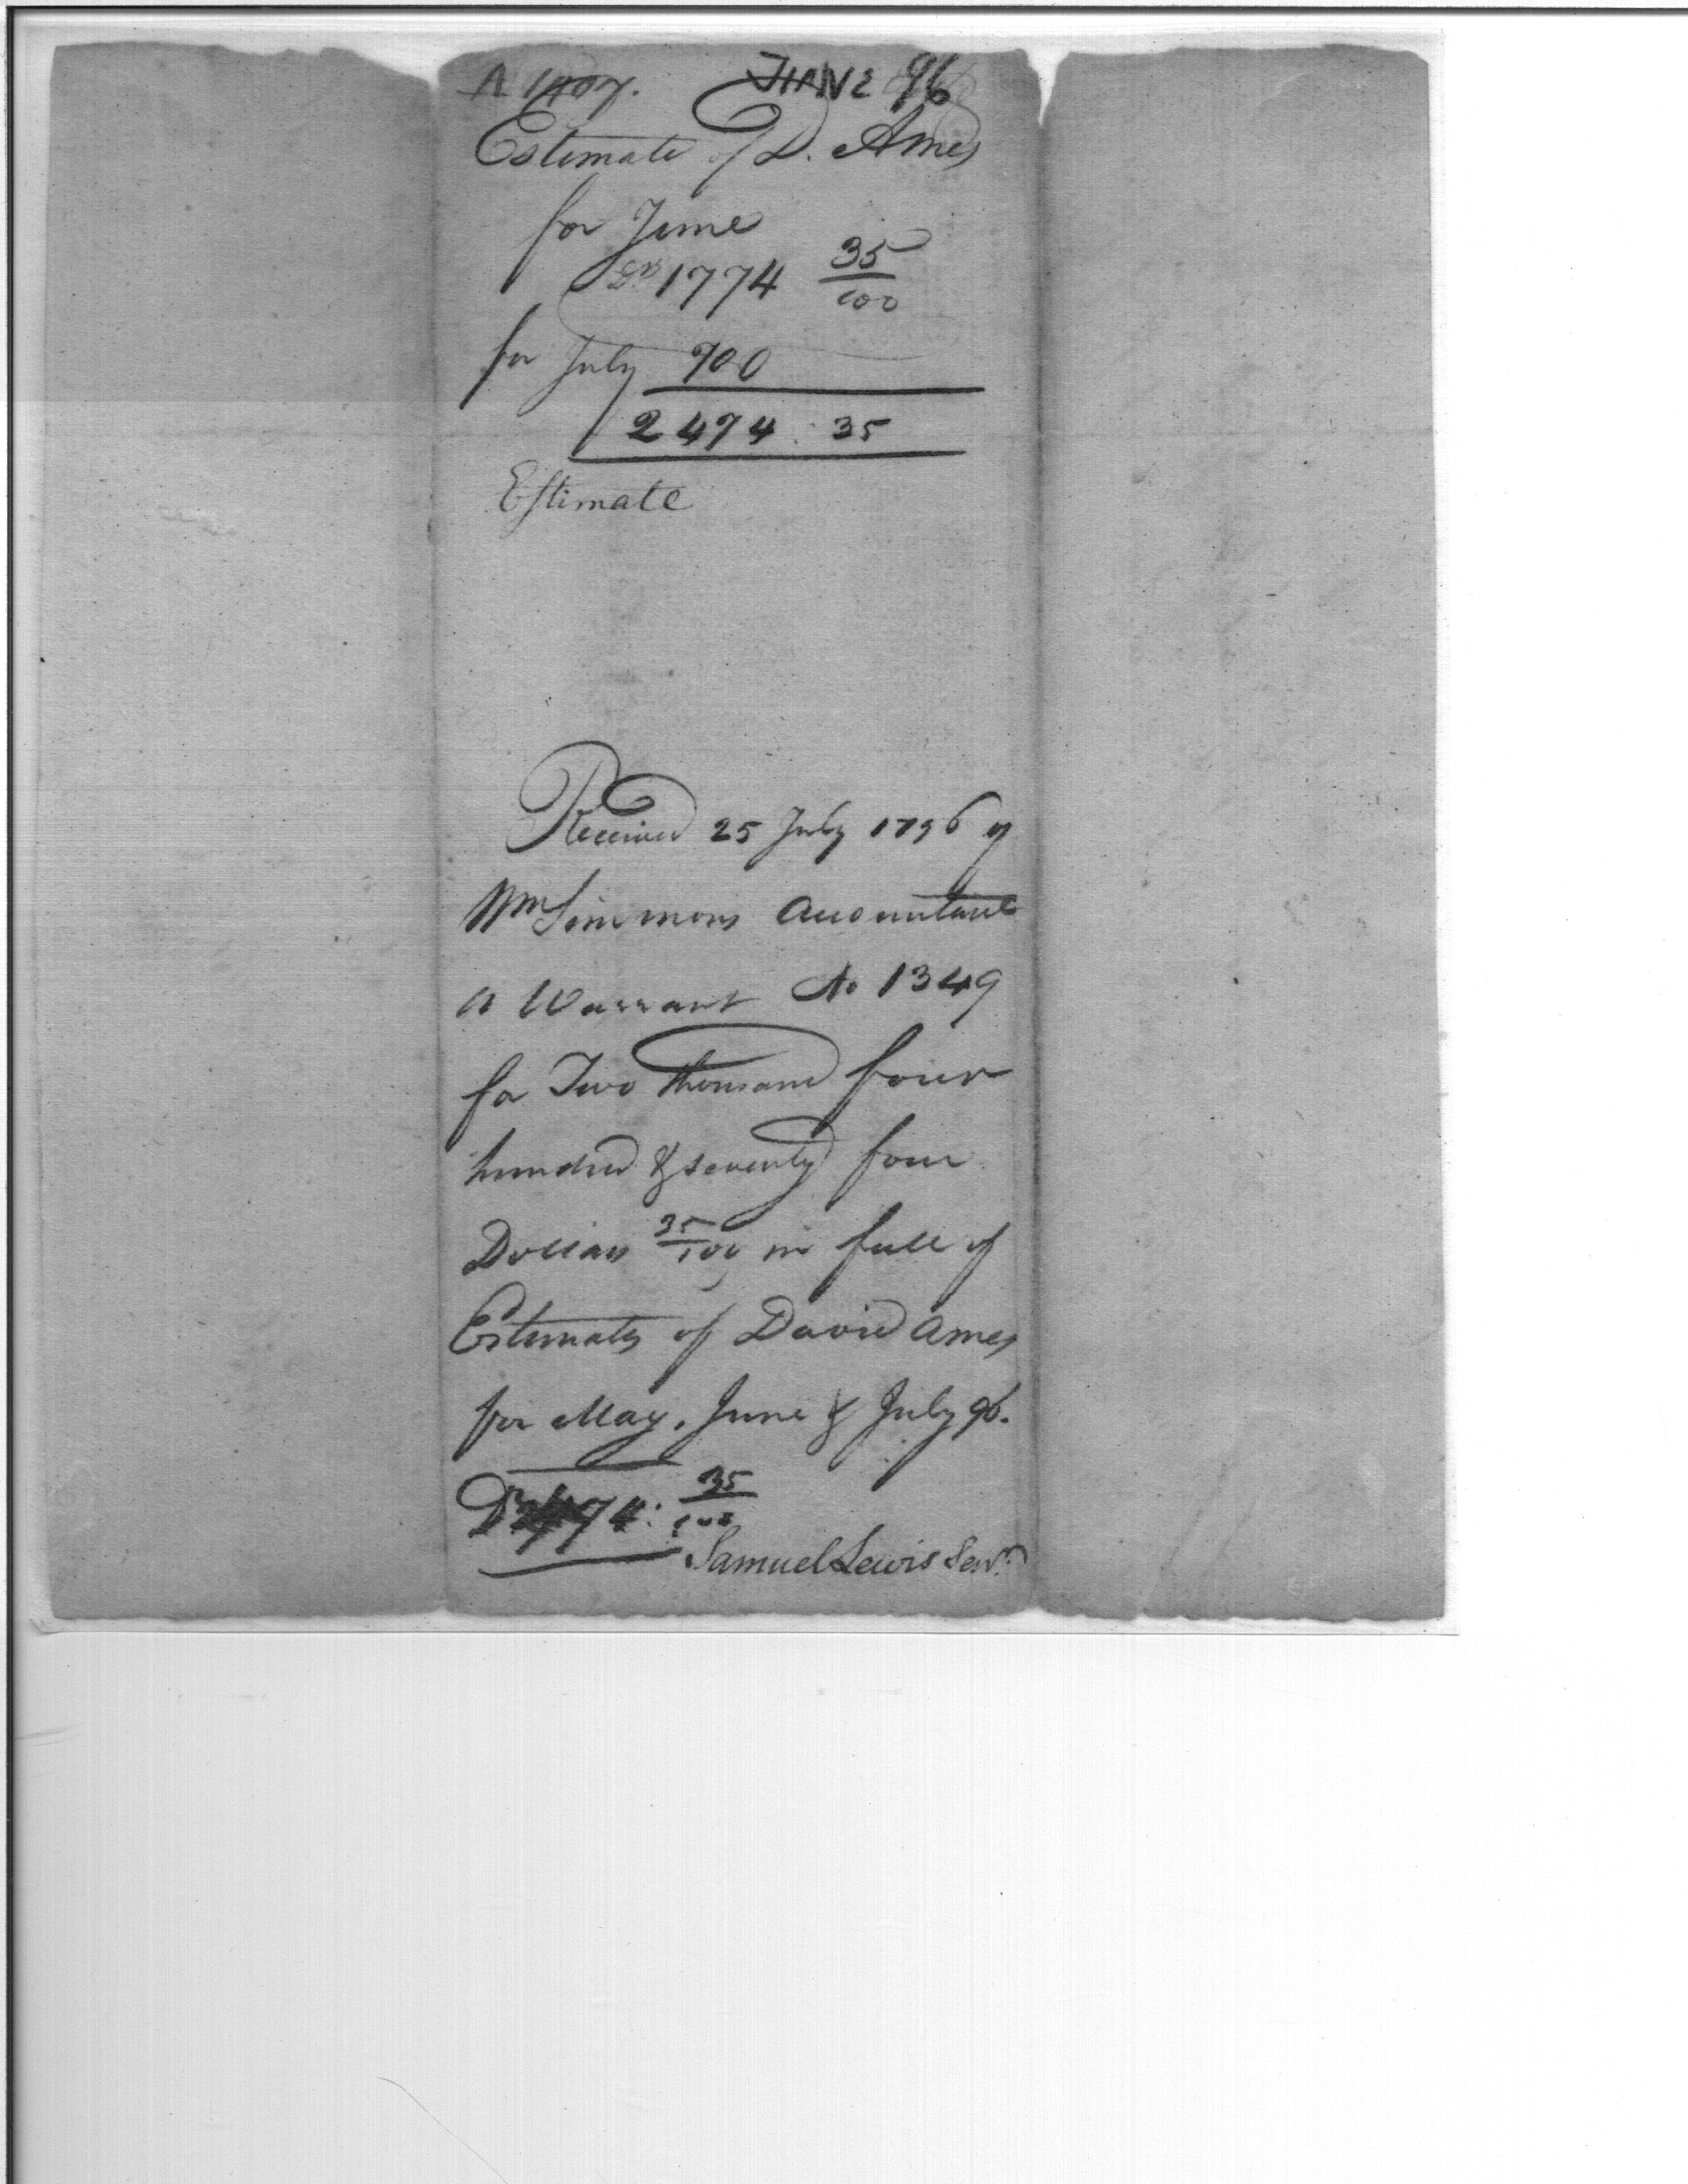 JUNE 96
Estimate of D. Ames
for June
Ds 1774 35/100
for July 700
2474 : 35
Estimate
Received 25 July 1796 of
Wm Simmons Accountant
a Warrant No 1349
for Two thousand four
hundred & seventy four
Dollars 35/100 in full of
Estimates of David Ames
for May, June & July 96.
Ds 2474: 35/100
Samuel Lewis Senr.